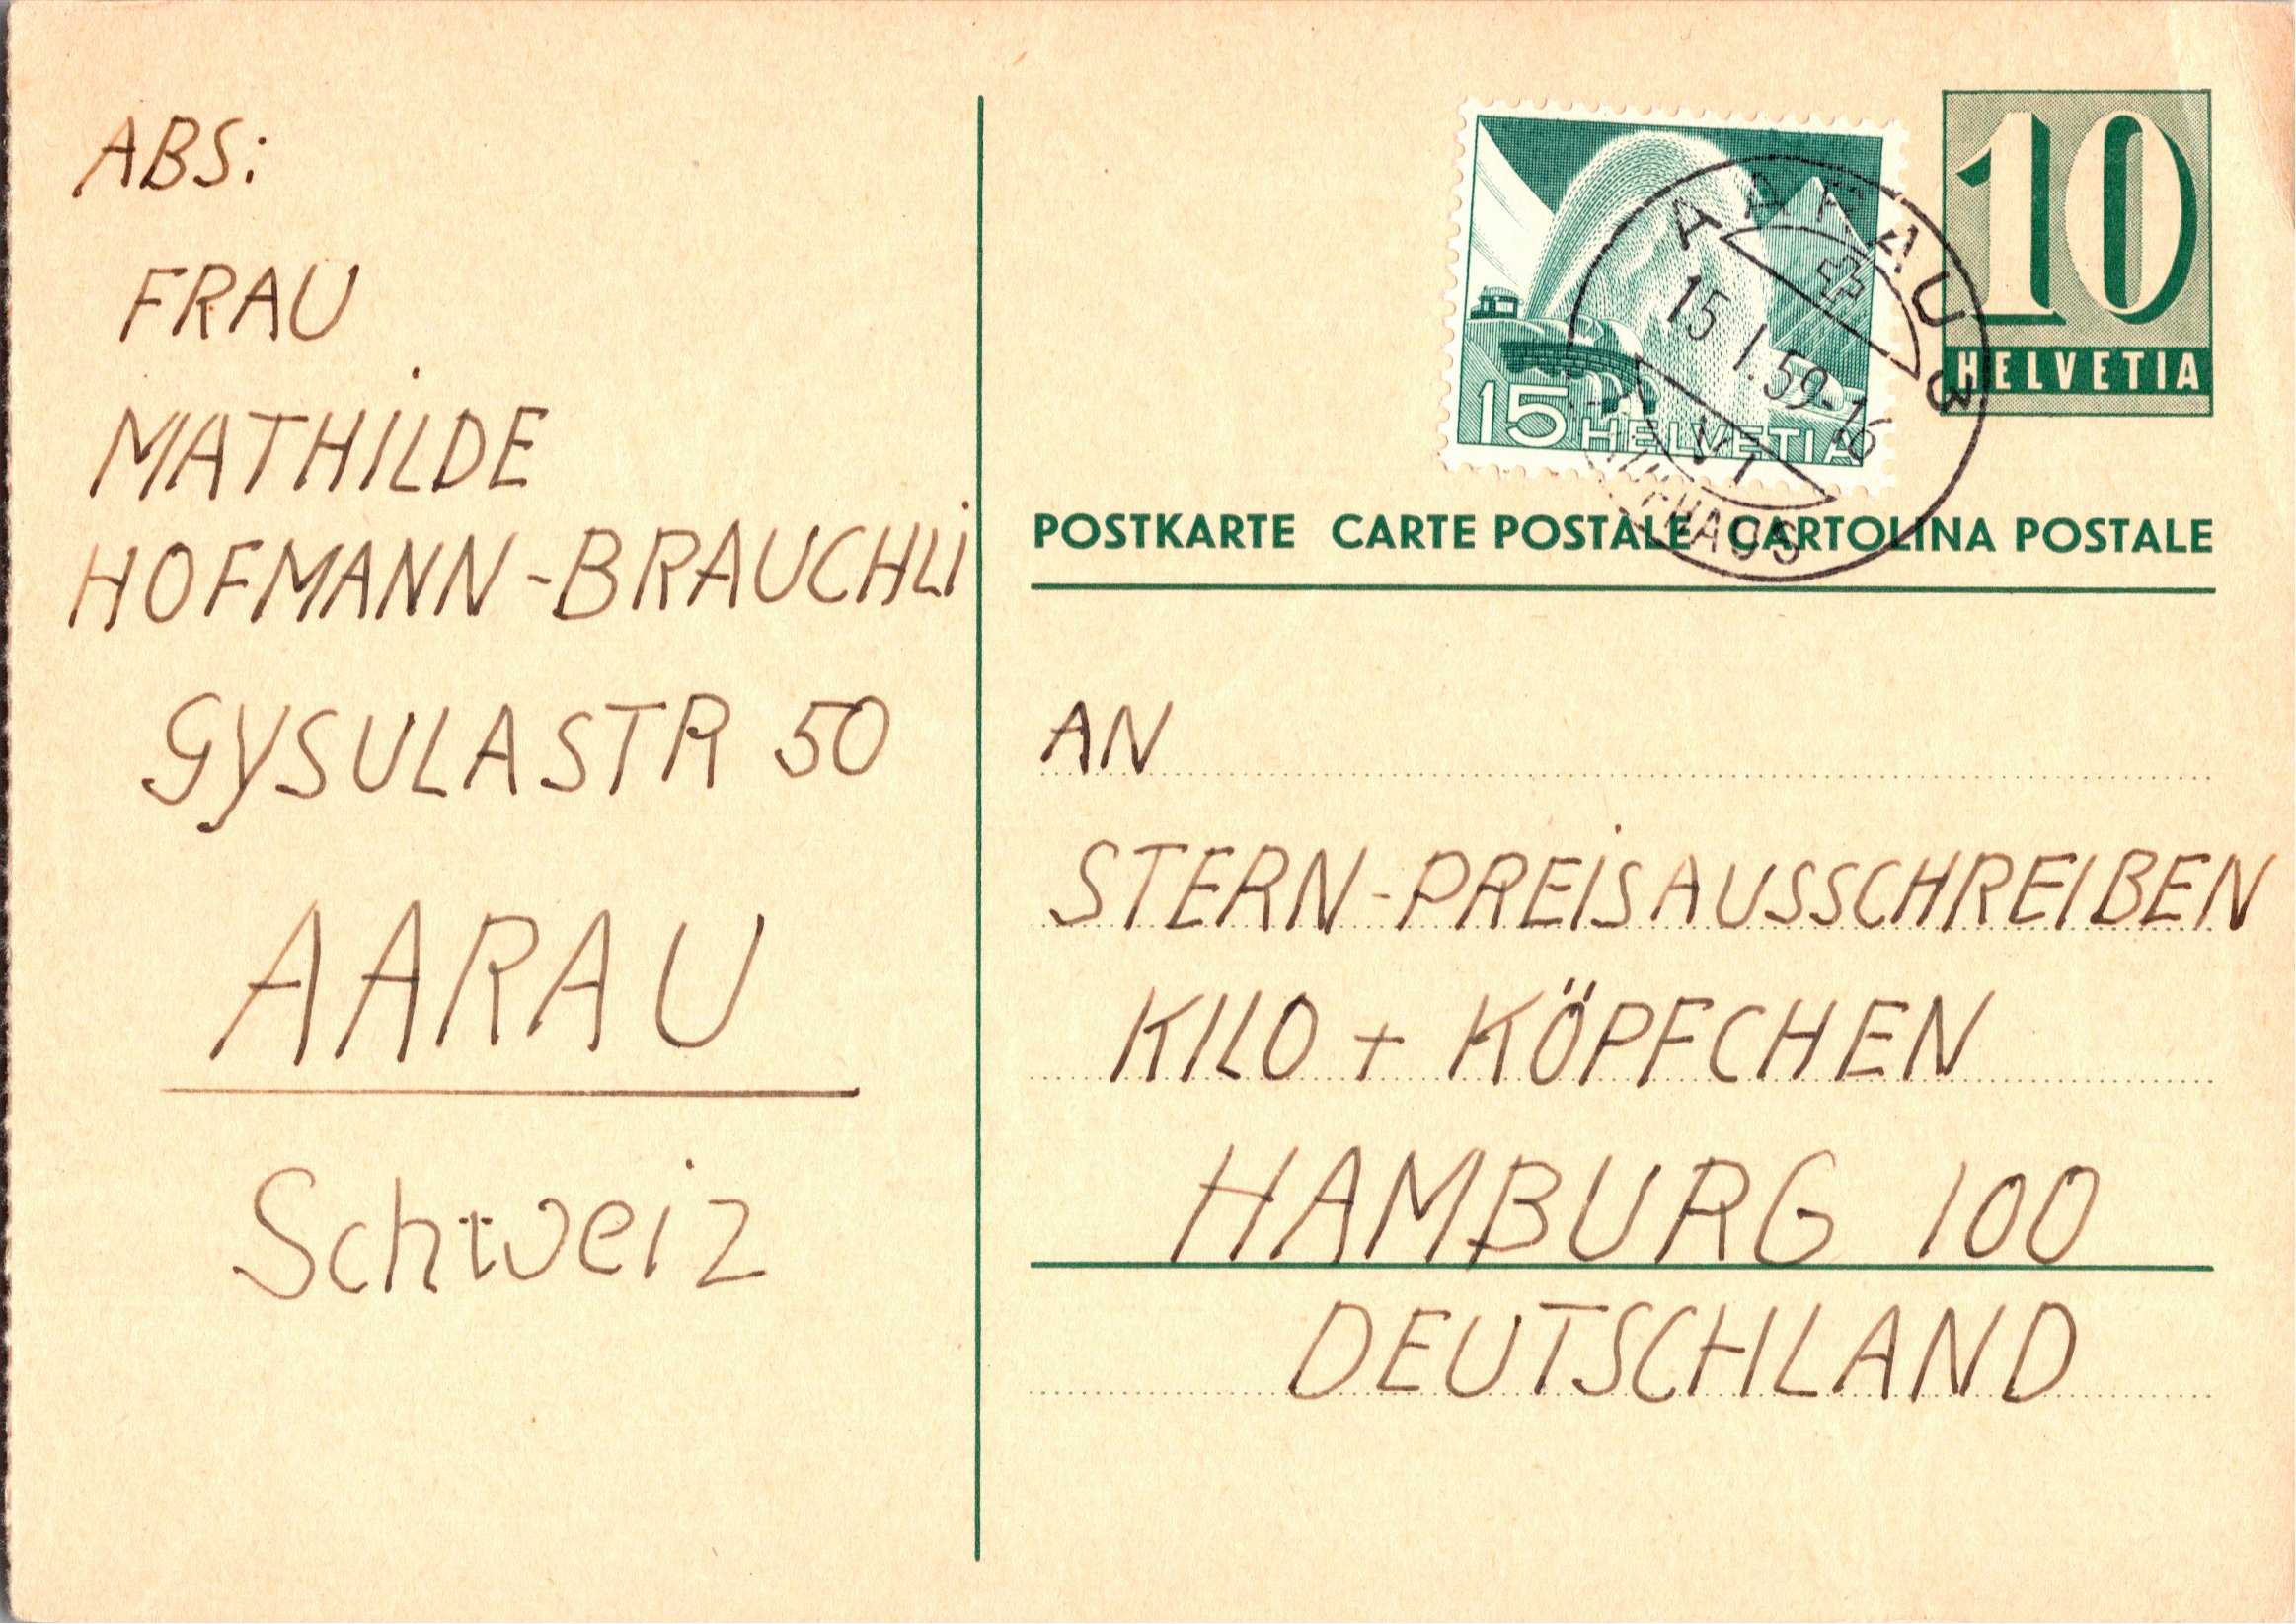 ABS:
FRAU
MATHILDE
HOFMANN-BRAUCHLI
GYSULASTR 50
AARAU
Schweiz
10
HELVETIA
15 HELVETIA
AARAU 3
15.I.59-16
VI
POSTKARTE CARTE POSTALE CARTOLINA POSTALE
AN
STERN-PREISAUSSCHREIBEN
KILO + KÖPFCHEN
HAMBURG 100
DEUTSCHLAND